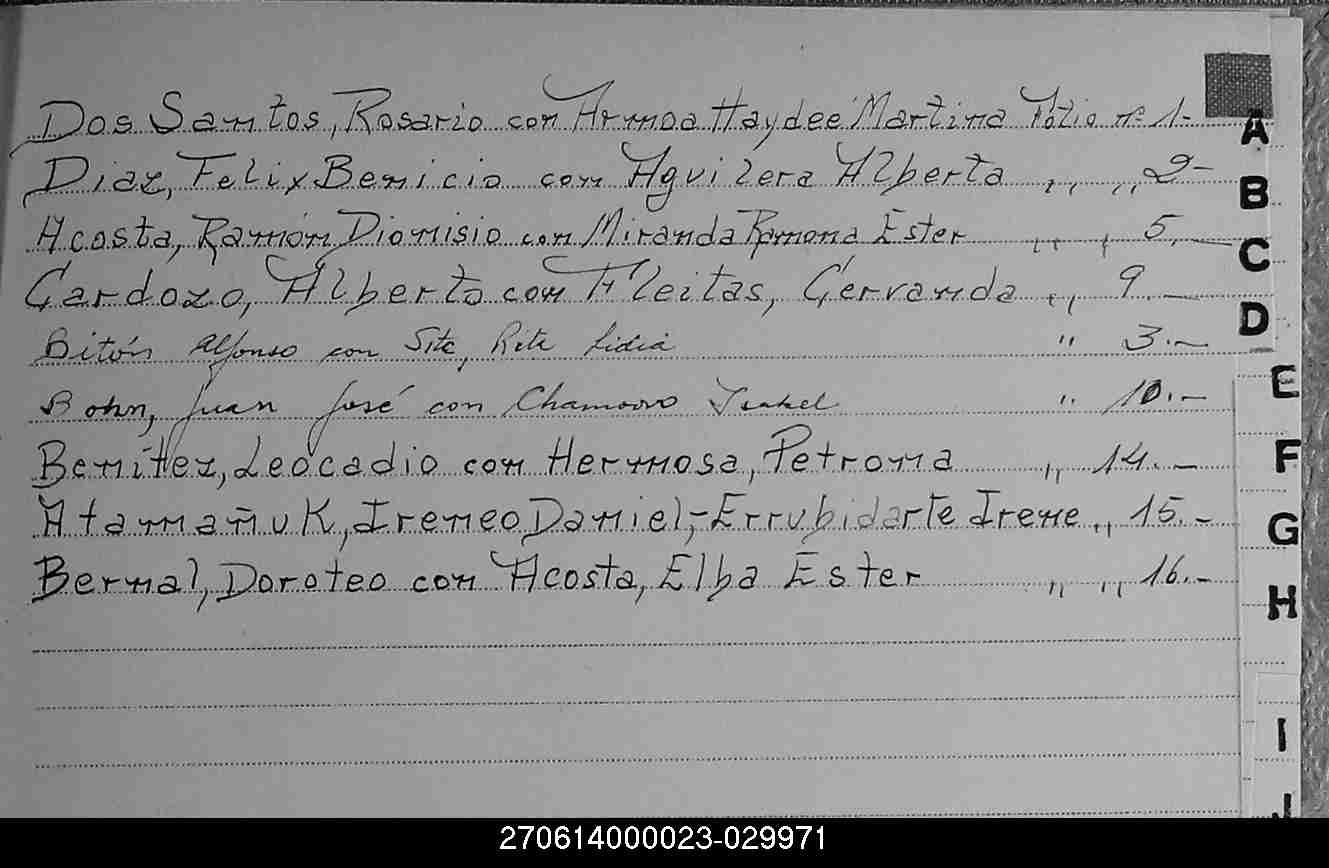 Dos Santos, Rosario con Armoa Haydeé Martina Folio nº 1-
Diaz, Felix Benicio con Aguilera Alberta ,, ,, 2-
Acosta, Ramón Dionisio con Miranda Ramona Ester ,, , 5.—
Cardozo, Alberto con Fleitas, Gervanda ,, 9.—
Bitón Alfonso con Rita Lidia " 3.—
Bohn, Juan José con Chamorro Isabel " 10.—
Benítez, Leocadio con Hermosa, Petrona ,, 14.—
Atamañuk, Ireneo Daniel,- Errubidarte Irene ,, 15.-
Bernal, Doroteo con Acosta, Elba Ester ,, ,, 16.-
A
B
C
D
E
F
G
H
I
J
270614000023-029971